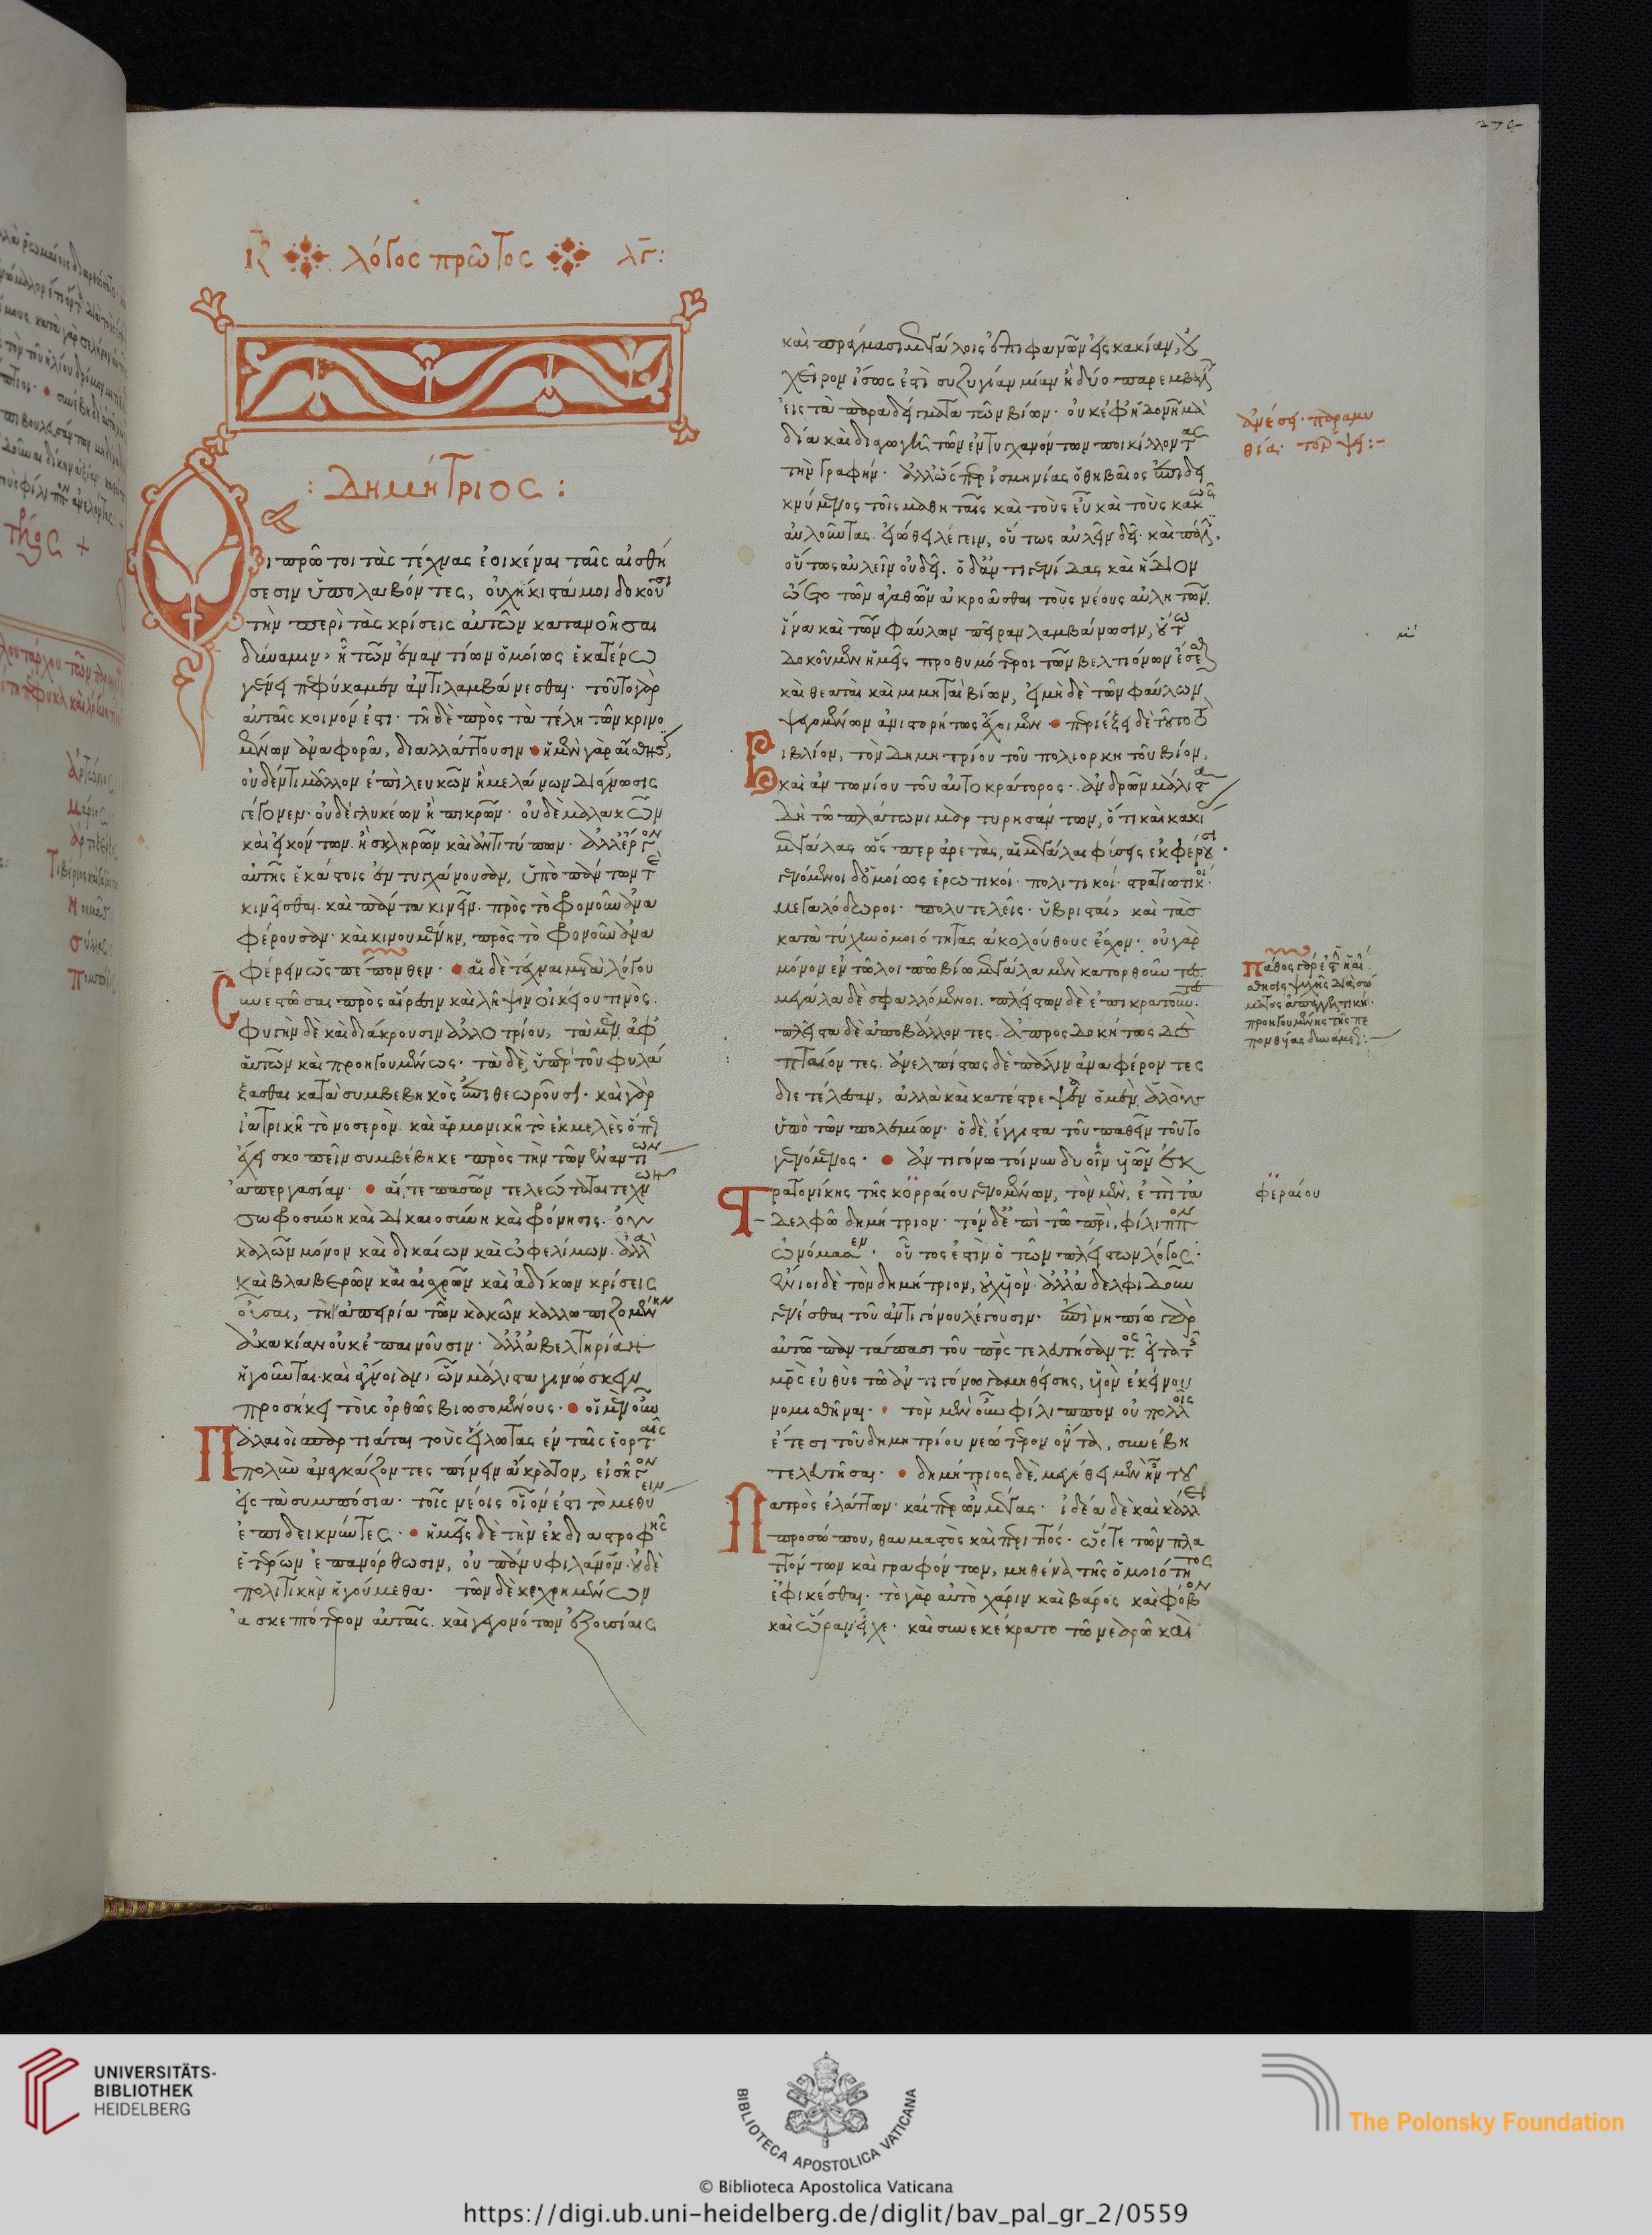 λόγος πρῶτος
: Δημήτριος :
Οἱ πρῶτοι τὰς τέχνας ἐοικέναι ταῖς αἰσθή
σεσιν ὑπολαβόντες, οὐχ ἥκιστά μοι δοκοῦσι
τὴν περὶ τὰς κρίσεις αὐτῶν κατανοῆσαι
δύναμιν, ᾗ τῶν ἐναντίων ὁμοίως ἑκατέρω
γένει πεφύκαμεν ἀντιλαμβάνεσθαι. τοῦτο γὰρ
αὐταῖς κοινόν ἐστι. τῆ δὲ πρὸς τὰ τέλη τῶν κρινο
μένων ἀναφορᾶ, διαλλάττουσιν. ἡ μὲν γὰρ αἴσθησις,
οὐδέν τι μᾶλλον ἐπὶ λευκῶν ἢ μελάνων διάγνωσις
γέγονεν. οὐδὲ γλυκέων ἢ πικρῶν. οὐδὲ μαλακῶν
καὶ εἰκόντων ἢ σκληρῶν καὶ ἀντιτύπων. ἀλλ' ἔργον
αὐτῆς ἑκάστοις ἐντυγχάνουσαν, ὑπὸ πάντων τε
κινεῖσθαι. καὶ πάντα κινεῖν. πρὸς τὸ φρονοῦν ἀνα
φέρουσαν. καὶ κινουμένην, πρὸς τὸ φρονοῦν ἀνα
φέρειν ὡς πέπονθεν. αἱ δὲ τέχναι μετὰ λόγου
συνεστῶσαι πρὸς αἵρεσιν καὶ λῆψιν οἰκείου τινὸς.
φυγὴν δὲ καὶ διάκρουσιν ἀλλοτρίου, τὰ μὲν ἀφ'
αὑτῶν καὶ προηγουμένως. τὰ δὲ, ὑπὲρ τοῦ φυλά
ξασθαι κατὰ συμβεβηκὸς ἐπιθεωροῦσι. καὶ γὰρ
ἰατρικῆ τὸ νοσερὸν. καὶ ἁρμονικῆ τὸ ἐκμελὲς ὅπη
ἔχει σκοπεῖν συμβέβηκε πρὸς τὴν τῶν ἐναντίων
ἀπεργασίαν. αἵ τε πασῶν τελεώταται τεχνῶν
σωφροσύνη καὶ δικαιοσύνη καὶ φρόνησις. οὐ
καλῶν μόνον καὶ δικαίων καὶ ὠφελίμων. ἀλλὰ
καὶ βλαβερῶν καὶ αἰσχρῶν καὶ ἀδίκων κρίσεις
οὖσαι, τὴν ἀπειρία τῶν κακῶν καλλωπιζομένην
ἀκακίαν οὐκ ἐπαινοῦσιν. ἀλλ' ἀβελτηρίαν
ἡγοῦνται. καὶ ἄγνοιαν, ὧν μάλιστα γινώσκειν
προσήκει τοὺς ὀρθῶς βιωσομένους. οἱ μὲν οὖν
Παλαιοὶ σπαρτιάται τοὺς εἵλωτας ἐν ταῖς ἑορταῖς
πολὺν ἀναγκάζοντες πίνειν ἄκρατον, εἰσῆγον
εἰς τὰ συμπόσια. τοῖς νέοις οἷόν ἐστι τὸ μεθύειν
ἐπιδεικνύντες. ἡμεῖς δὲ τὴν ἐκ διαστροφῆς
ἑτέρων ἐπανόρθωσιν, οὐ πάνυ φιλάνθρωπον. οὐδὲ
πολιτικὴν ἡγούμεθα. τῶν δὲ κεχρημένων
ἀσκεπτότερον αὑτοῖς. καὶ γεγονότων ἐν ἐξουσίαις
καὶ πράγμασι μεγάλοις ἐπιφανῶν εἰς κακίαν, οὐ
χεῖρον ἴσως ἐστὶ συζυγίαν μίαν ἢ δύο παρεμβαλεῖν
εἰς τὰ παραδείγματα τῶν βίων. οὐκ ἐφ' ἡδονῇ μὰ
δία καὶ διαγωγῆ τῶν ἐντυγχανόντων ποικίλλοντας
τὴν γραφήν. ἀλλ' ὥσπερ ἰσμηνίας ὁ θηβαῖος ἐπιδει
κνύμενος τοῖς μαθηταῖς καὶ τοὺς εὖ καὶ τοὺς κακῶς
αὐλοῦντας. εἰώθει λέγειν, οὕτως αὐλεῖν δεῖ. καὶ πάλιν,
οὕτως αὐλεῖν οὐ δεῖ. ὁ δ' ἀντιγενίδας καὶ ἥδιον
ᾤετο τῶν ἀγαθῶν ἀκροᾶσθαι τοὺς νέους αὐλητῶν.
ἵνα καὶ τῶν φαύλων πεῖραν λαμβάνωσιν, οὕτω
δοκοῦμεν ἡμεῖς προθυμότεροι τῶν βελτιόνων ἔσεσθαι
καὶ θεαταὶ καὶ μιμηταὶ βίων, εἰ μηδὲ τῶν φαύλων
ψεγομένων ἀνιστορήτως ἔχοιμεν. περιέξει δὲ τοῦτο τὸ
Βιβλίον, τὸν δημητρίου τοῦ πολιορκητοῦ βίον,
καὶ ἀντωνίου τοῦ αὐτοκράτορος. ἀνδρῶν μάλιστα
δὴ τῶ πλάτωνι μαρτυρησάντων, ὅτι καὶ κακί
μεγάλας ὥσπερ ἀρετὰς, αἱ μεγάλαι φύσεις ἐκφέρουσι.
γενόμενοι δ' ὁμοίως ἐρωτικοί. ποτικοί. στρατιωτικοί.
μεγαλόδωροι. πολυτελεῖς. ὑβρισταί, καὶ τὰς
κατὰ τύχην ὁμοιότητας ἀκολούθους ἔσχον. οὐ γὰρ
μόνον ἐν τῶ λοιπῶ βίω μεγάλα μὲν κατορθοῦντες.
μεγάλα δὲ σφαλλόμενοι. πλείστων δὲ ἐπικρατοῦντες.
πλεῖστα δὲ ἀποβάλλοντες. ἀπροσδοκήτως δὲ
πταίοντες. ἀνελπίστως δὲ πάλιν ἀναφέροντες
διετέλεσαν, ἀλλὰ καὶ κατέστρεψεν ὁ μὲν ἁλοὺς
ὑπὸ τῶν πολεμίων. ὁ δὲ, ἔγγιστα τοῦ παθεῖν τοῦτο
γενόμενος. ἀντιγόνω τοίνυν δυοῖν υἱῶν ἐκ
Στρατονίκης τῆς κορραίου γενομένων, τὸν μὲν, ἐπὶ τἀ
δελφῶ δημήτριον. τὸν δ' ἐπὶ τῶ πατρὶ, φίλιππον
ὠνόμασεν. οὗτός ἐστιν ὁ τῶν πλείστων λόγος.
ἔνιοι δὲ τὸν δημήτριον, οὐχ υἱὸν. ἀλλ' ἀδελφιδοῦν
γενέσθαι τοῦ ἀντιγόνου λέγουσιν. ἐπὶ νηπίω γὰρ
αὐτῶ παντάπασι τοῦ πατρὸς τελευτήσαντος. εἶτα τῆς
μητρὸς εὐθὺς τῶ ἀντιγόνω γαμηθείσης, υἱὸν ἐκείνου
νομισθῆναι. τὸν μὲν οὖν φίλιππον οὐ πολλοῖς
ἔτεσι τοῦ δημητρίου νεώτερον ὄντα, συνέβη
τελευτῆσαι. δημήτριος δὲ, μεγέθει μὲν ἦν τοῦ
Πατρὸς ἐλάττων. καίπερ ὢν μέγας. ἰδέα δὲ καὶ κάλλει
προσώπου, θαυμαστὸς καὶ περιττός. ὥστε τῶν πλα
ττόντων καὶ γραφόντων, μηθένα τῆς ὁμοιότητος
ἐφικέσθαι. τὸ γὰρ αὐτὸ χάριν καὶ βάρος καὶ φόβον
καὶ ὥραν εἶχε. καὶ συνεκέκρατο τῶ νεαρῶ καὶ
φεραίου
UNIVERSITÄTS-
BIBLIOTHEK
HEIDELBERG
BIBLIOTECA APOSTOLICA VATICANA
The Polonsky Foundation
© Biblioteca Apostolica Vaticana
https://digi.ub.uni-heidelberg.de/diglit/bav_pal_gr_2/0559